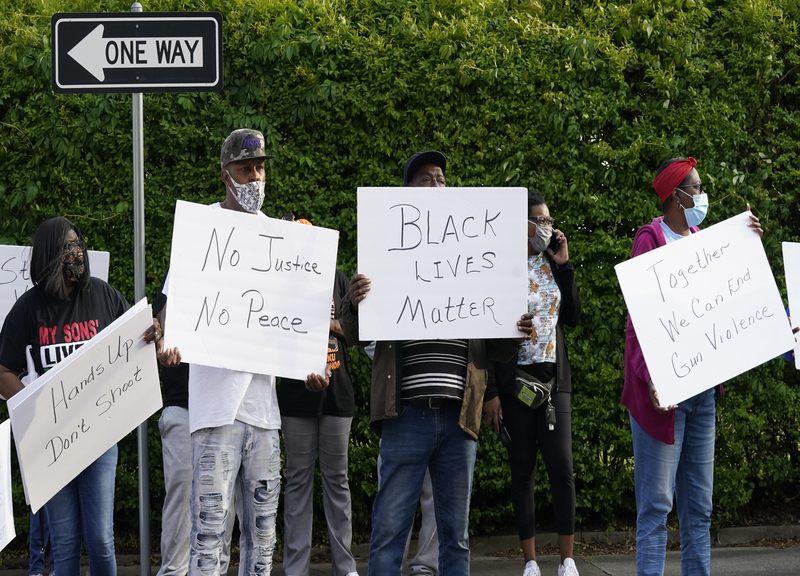 ONE WAY
No Justice
No Peace
BLACK
LIVES
Matter
Together
We Can End
Gun Violence
Hands Up
Don't Shoot
MY SONS'
LIVE